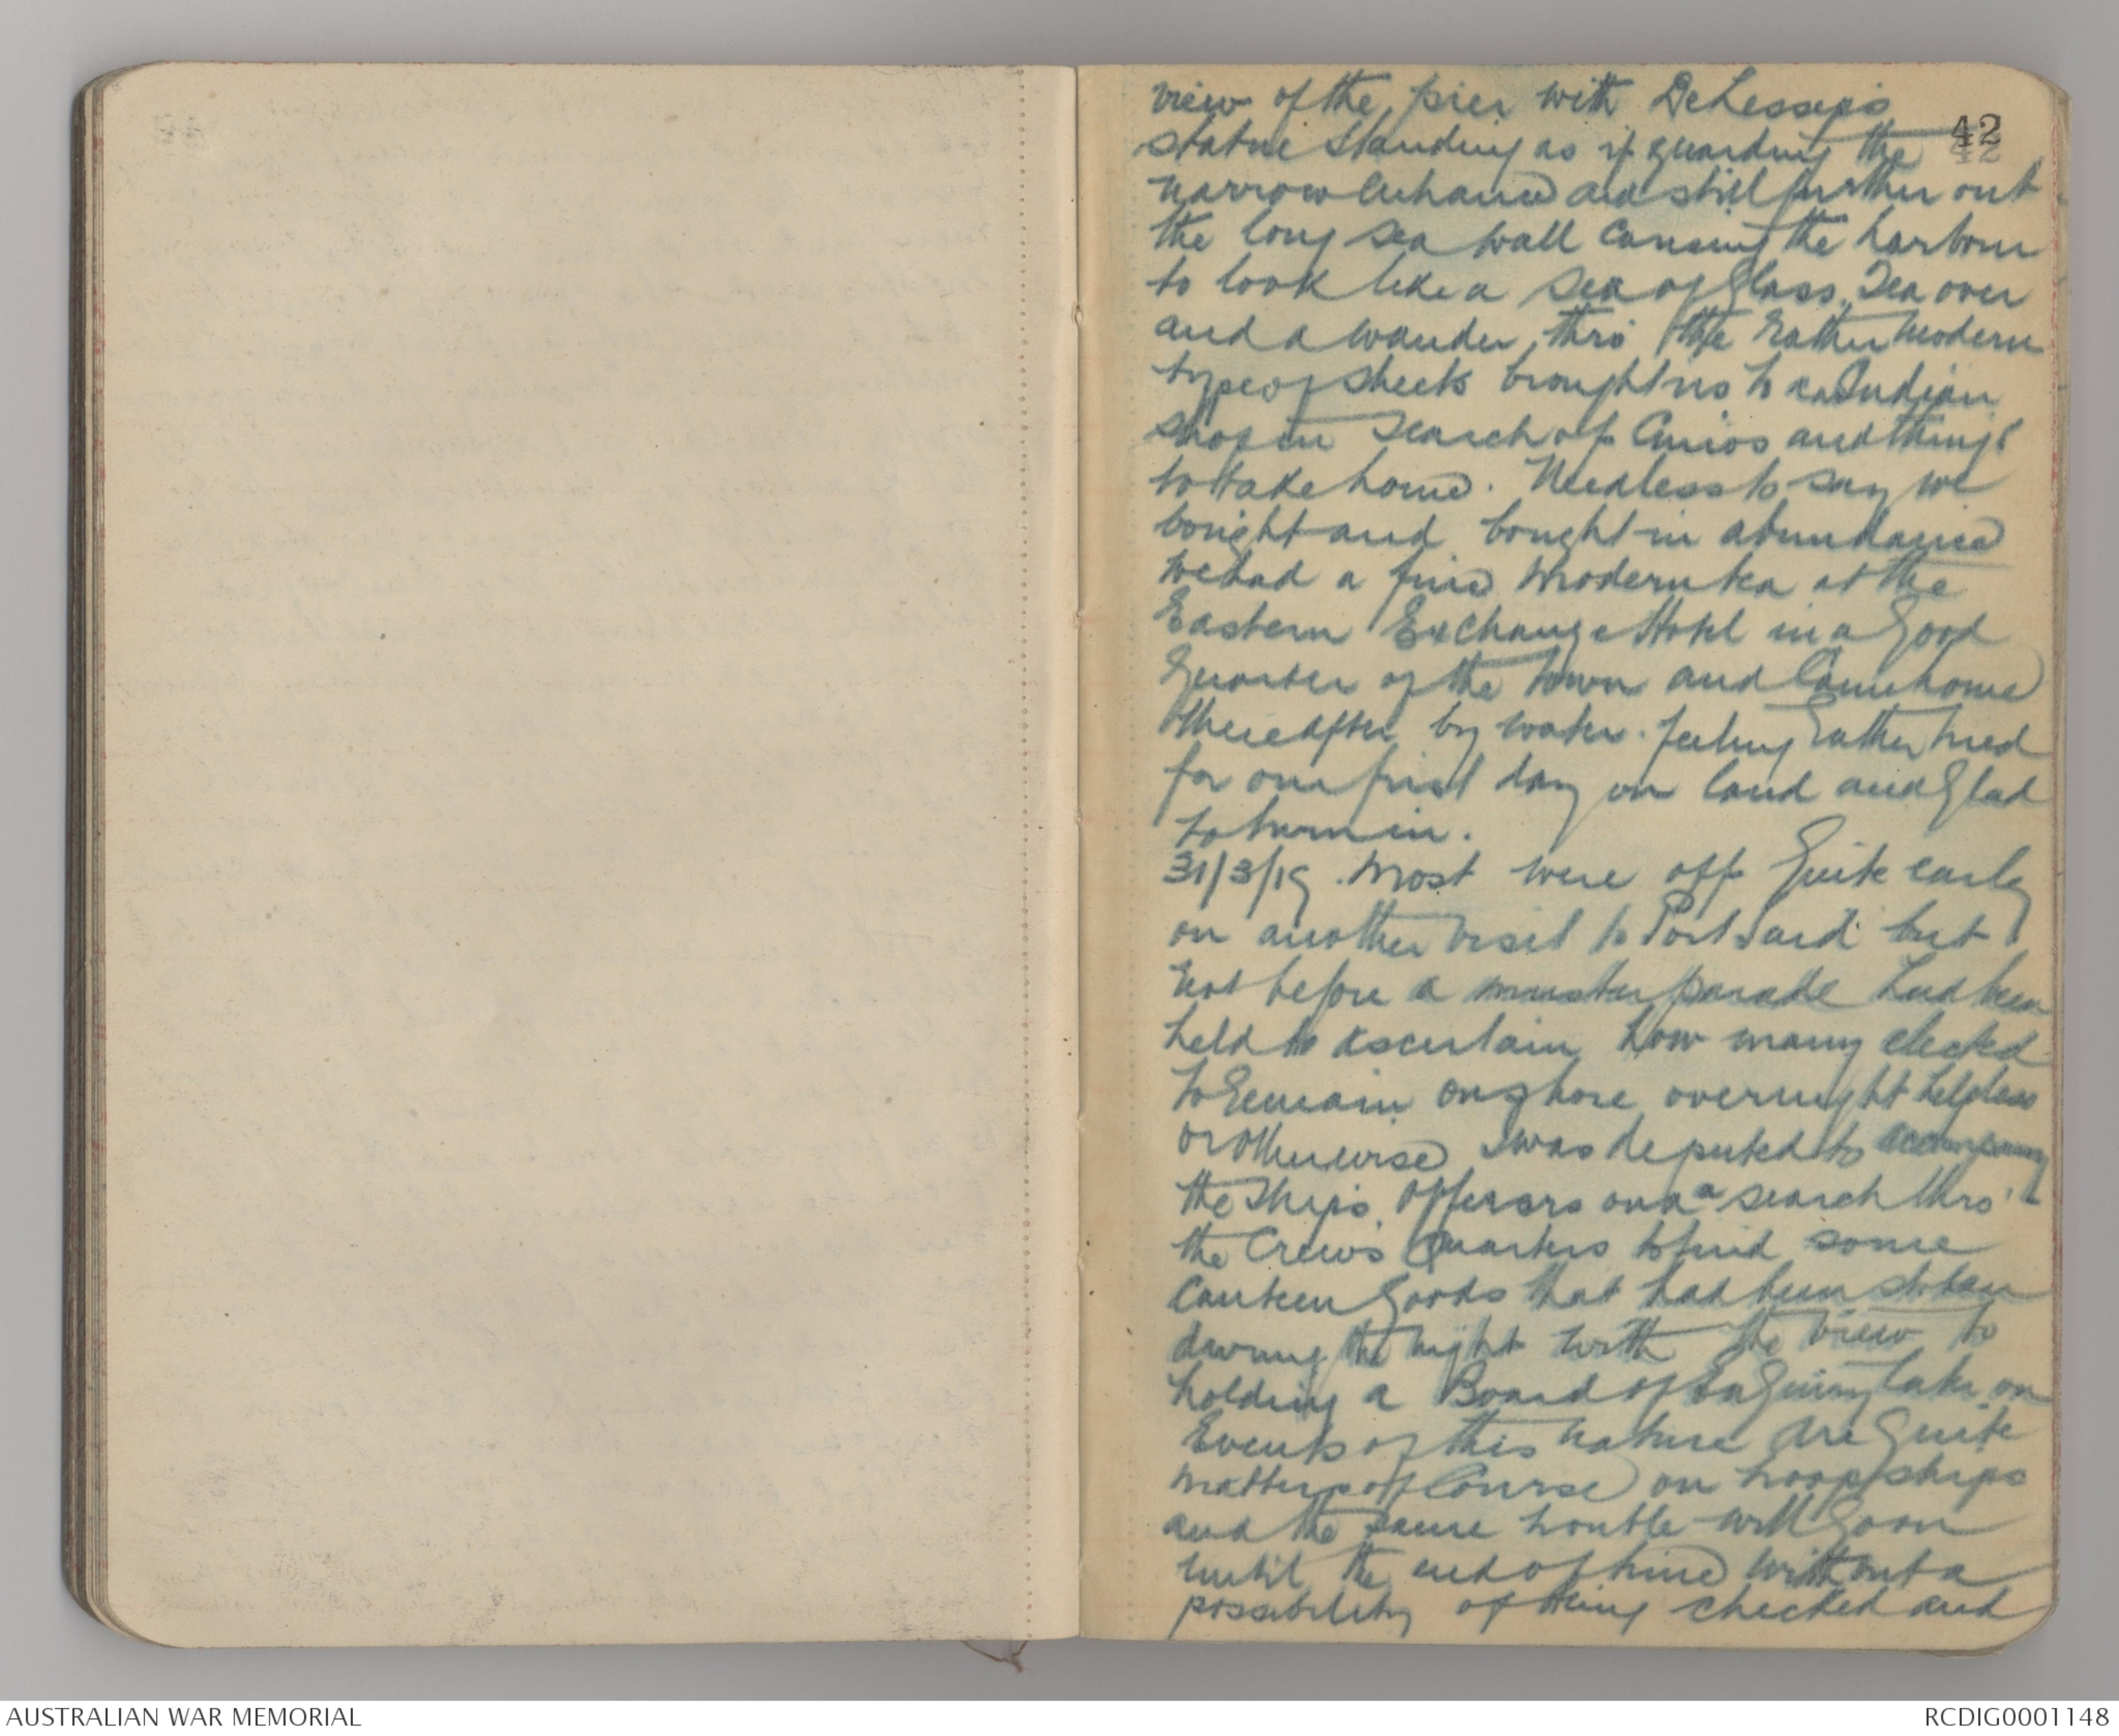 view of the pier with DeLessep's
42
statue standing as if guarding the
narrow entrance and still further out
the long sea wall causing the harbour
to look like a sea of glass. Tea over
and a wander thro' the rather modern
type of streets brought us to an Indian
shop in search of Curios and things
to take home. Needless to say we
bought and bought in abundance
We had a fine modern tea at the
Eastern Exchange Hotel in a good
quarter of the town and came home
thereafter by water. feeling rather tired
for our first day on land and glad
to turn in.
31/3/19. Most were off quite early
on another visit to Port Said but
not before a muster parade had been
held to ascertain how many elected
to remain onshore overnight helpless
or otherwise I was deputed to accompany
the Ship's Officers on a a search thro'
the Crew's Quarters to find some
Canteen goods that had been stolen
during the night with the view to
holding a Board of Enquiry later on
Events of this nature are quite
matters of Course on troopships
and the same trouble will go on
until the end of time without a
possibility of being checked and
AUSTRALIAN WAR MEMORIAL
RCDIG0001148